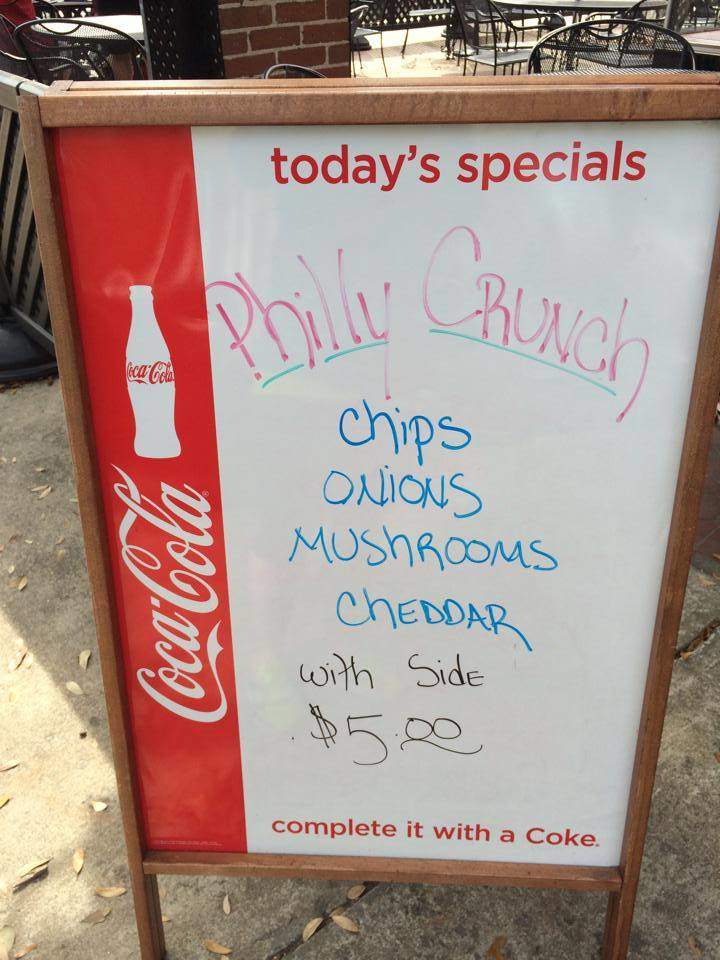 today's specials
Philly CRUNCh
Chips
ONIONS
MUShROOMS
ChEDDAR
with SidE
$5.00
complete it with a Coke.
Coca-Cola
Coca-Cola